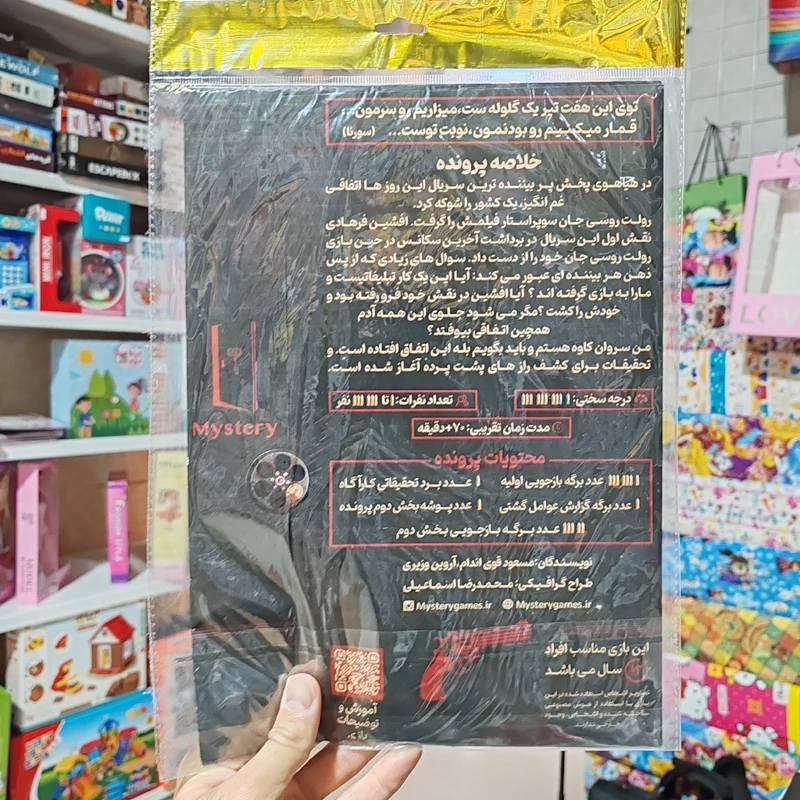 توی این هفت تیر یک گلوله ست، میزاریم رو سرمون...
قمار میکنیم رو بودنمون، نوبت توست... (سورنا)
خلاصه پرونده
در هیاهوی پخش پر بیننده ترین سریال این روز ها اتفاقی
غم انگیز، یک کشور را شوکه کرد.
رولت روسی جان سوپراستار فیلمش را گرفت. افشین فرهادی
نقش اول این سریال در برداشت آخرین سکانس در حین بازی
رولت روسی جان خود را از دست داد. سوال های زیادی که از پس
ذهن هر بیننده ای عبور می کند: آیا این یک کار تبلیغاتیست و
مارا به بازی گرفته اند؟ آیا افشین در نقش خود فرو رفته بود و
خودش را کشت؟ مگر می شود جلوی این همه آدم
همچین اتفاقی بیوفتد؟
من سروان کاوه هستم و باید بگویم بله این اتفاق افتاده است. و
تحقیقات برای کشف راز های پشت پرده آغاز شده است.
درجه سختی:
تعداد نفرات: ۱ تا نفر
مدت زمان تقریبی: +۷۰ دقیقه
Mystery
محتویات پرونده
عدد برگه بازجویی اولیه
۱ عدد برد تحقیقاتی کارآگاه
۱ عدد برگه گزارش عوامل گشتی
۱ عدد پوشه بخش دوم پرونده
عدد برگه بازجویی بخش دوم
نویسندگان: مسعود قوی اندام، آروین وزیری
طراح گرافیکی: محمدرضا اسماعیلی
Mysterygames.ir
Mysterygames.ir
این بازی مناسب افراد
سال می باشد
تصاویر اشخاص استفاده شده در این
بازی با استفاده از هوش مصنوعی
ساخته شده و اشخاص، وجود
خارجی ندارند
آموزش و
توضیحات
بازی
ESCAPE BOX
MINI IRON